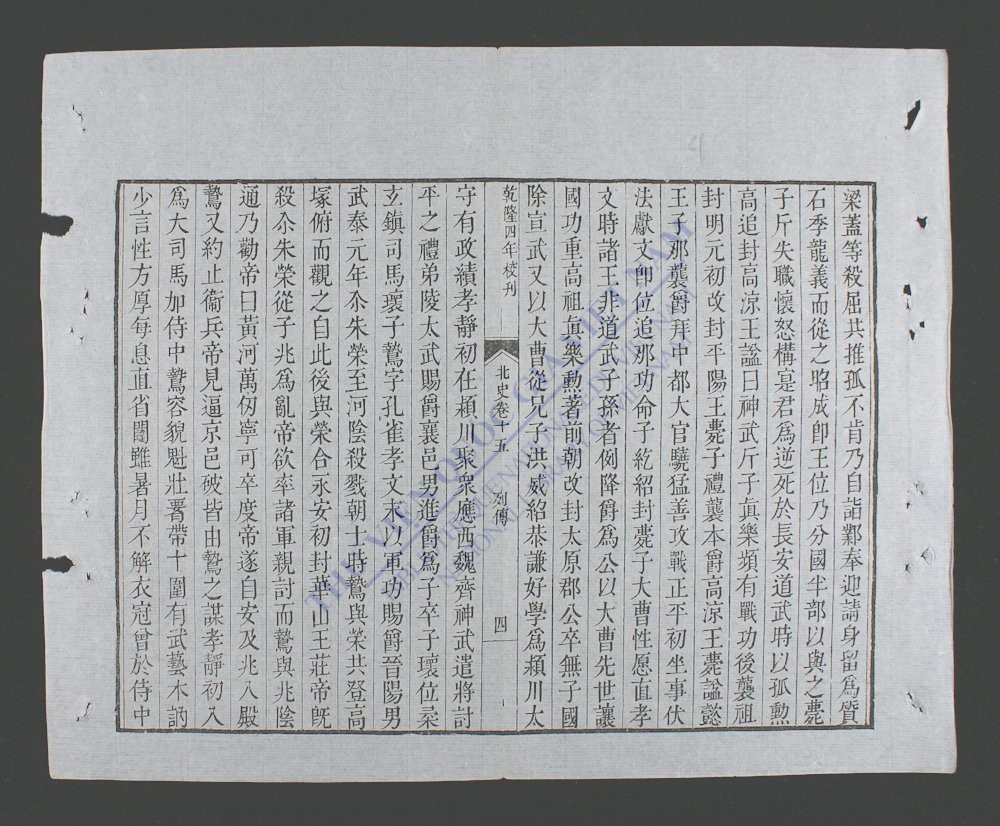 梁蓋等殺屈共推孤不肯乃自詣鄴奉迎請身留爲質
石季龍義而從之昭成卽王位乃分國半部以與之薨
子斤失職懷怒構寔君爲逆死於長安道武時以孤勲
高追封高涼王諡曰神武斤子眞樂頻有戰功後襲祖
封明元初改封平陽王薨子禮襲本爵高涼王薨諡懿
王子那襲爵拜中都大官驍猛善攻戰正平初坐事伏
法獻文卽位追那功命子紇紹封薨子大曹性愿直孝
文時諸王非道武子孫者例降爵爲公以大曹先世讓
國功重高祖眞樂勲著前朝改封太原郡公卒無子國
除宣武又以大曹從兄子洪威紹恭謙好學爲潁川太
乾隆四年校刊
北史卷十五
列傳
四
守有政績孝靜初在潁川聚衆應西魏齊神武遣將討
平之禮弟陵太武賜爵襄邑男進爵爲子卒子瓌位柔
玄鎮司馬瓌子鷙字孔雀孝文末以軍功賜爵晉陽男
武泰元年尒朱榮至河陰殺戮朝士時鷙與榮共登高
塚俯而觀之自此後與榮合永安初封華山王莊帝旣
殺尒朱榮從子兆爲亂帝欲率諸軍親討而鷙與兆陰
通乃勸帝曰黃河萬仞寧可卒度帝遂自安及兆入殿
鷙又約止衞兵帝見逼京邑破皆由鷙之謀孝靜初入
爲大司馬加侍中鷙容貌魁壯署帶十圍有武藝木訥
少言性方厚每息直省闥雖暑月不解衣冠曾於侍中